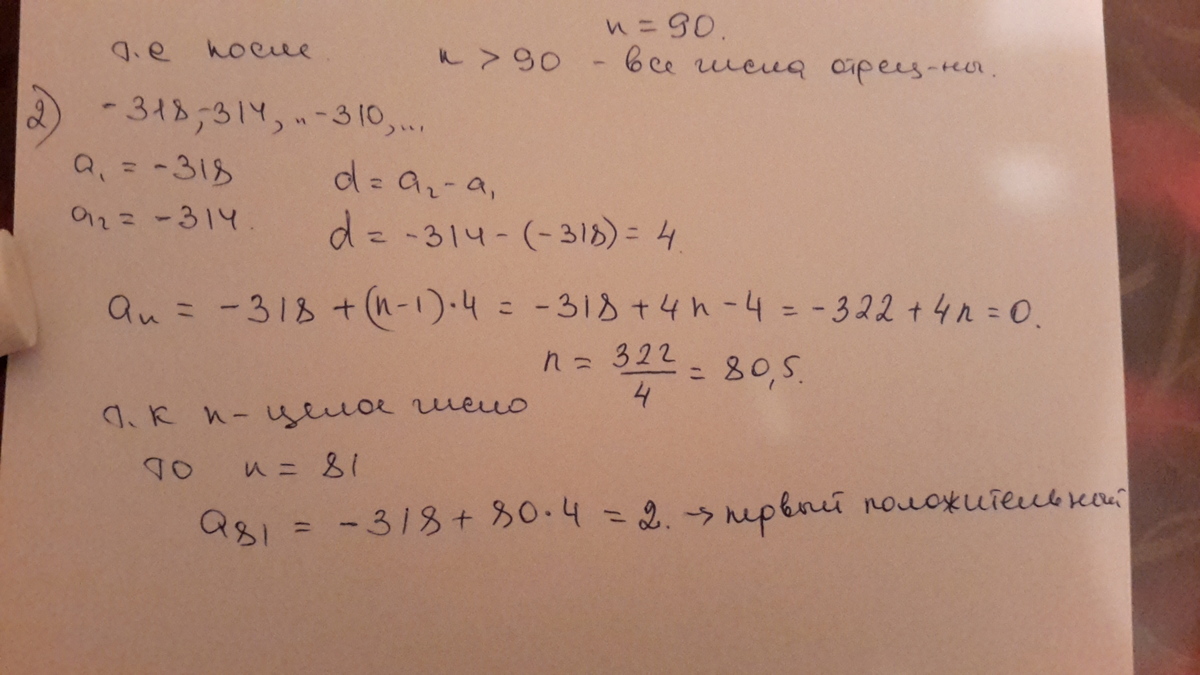 n = 90.
т.е после n > 90 - все числа отриц-ны.
2) -318,-314,..-310,...
a₁ = -318 d = a₂ - a₁
a₂ = -314. d = -314 - (-318) = 4.
aₙ = -318 + (n-1)·4 = -318 + 4n - 4 = -322 + 4n = 0.
n = 322/4 = 80,5.
т.к n - целое число
то n = 81
a₈₁ = -318 + 80·4 = 2. → первый положительный